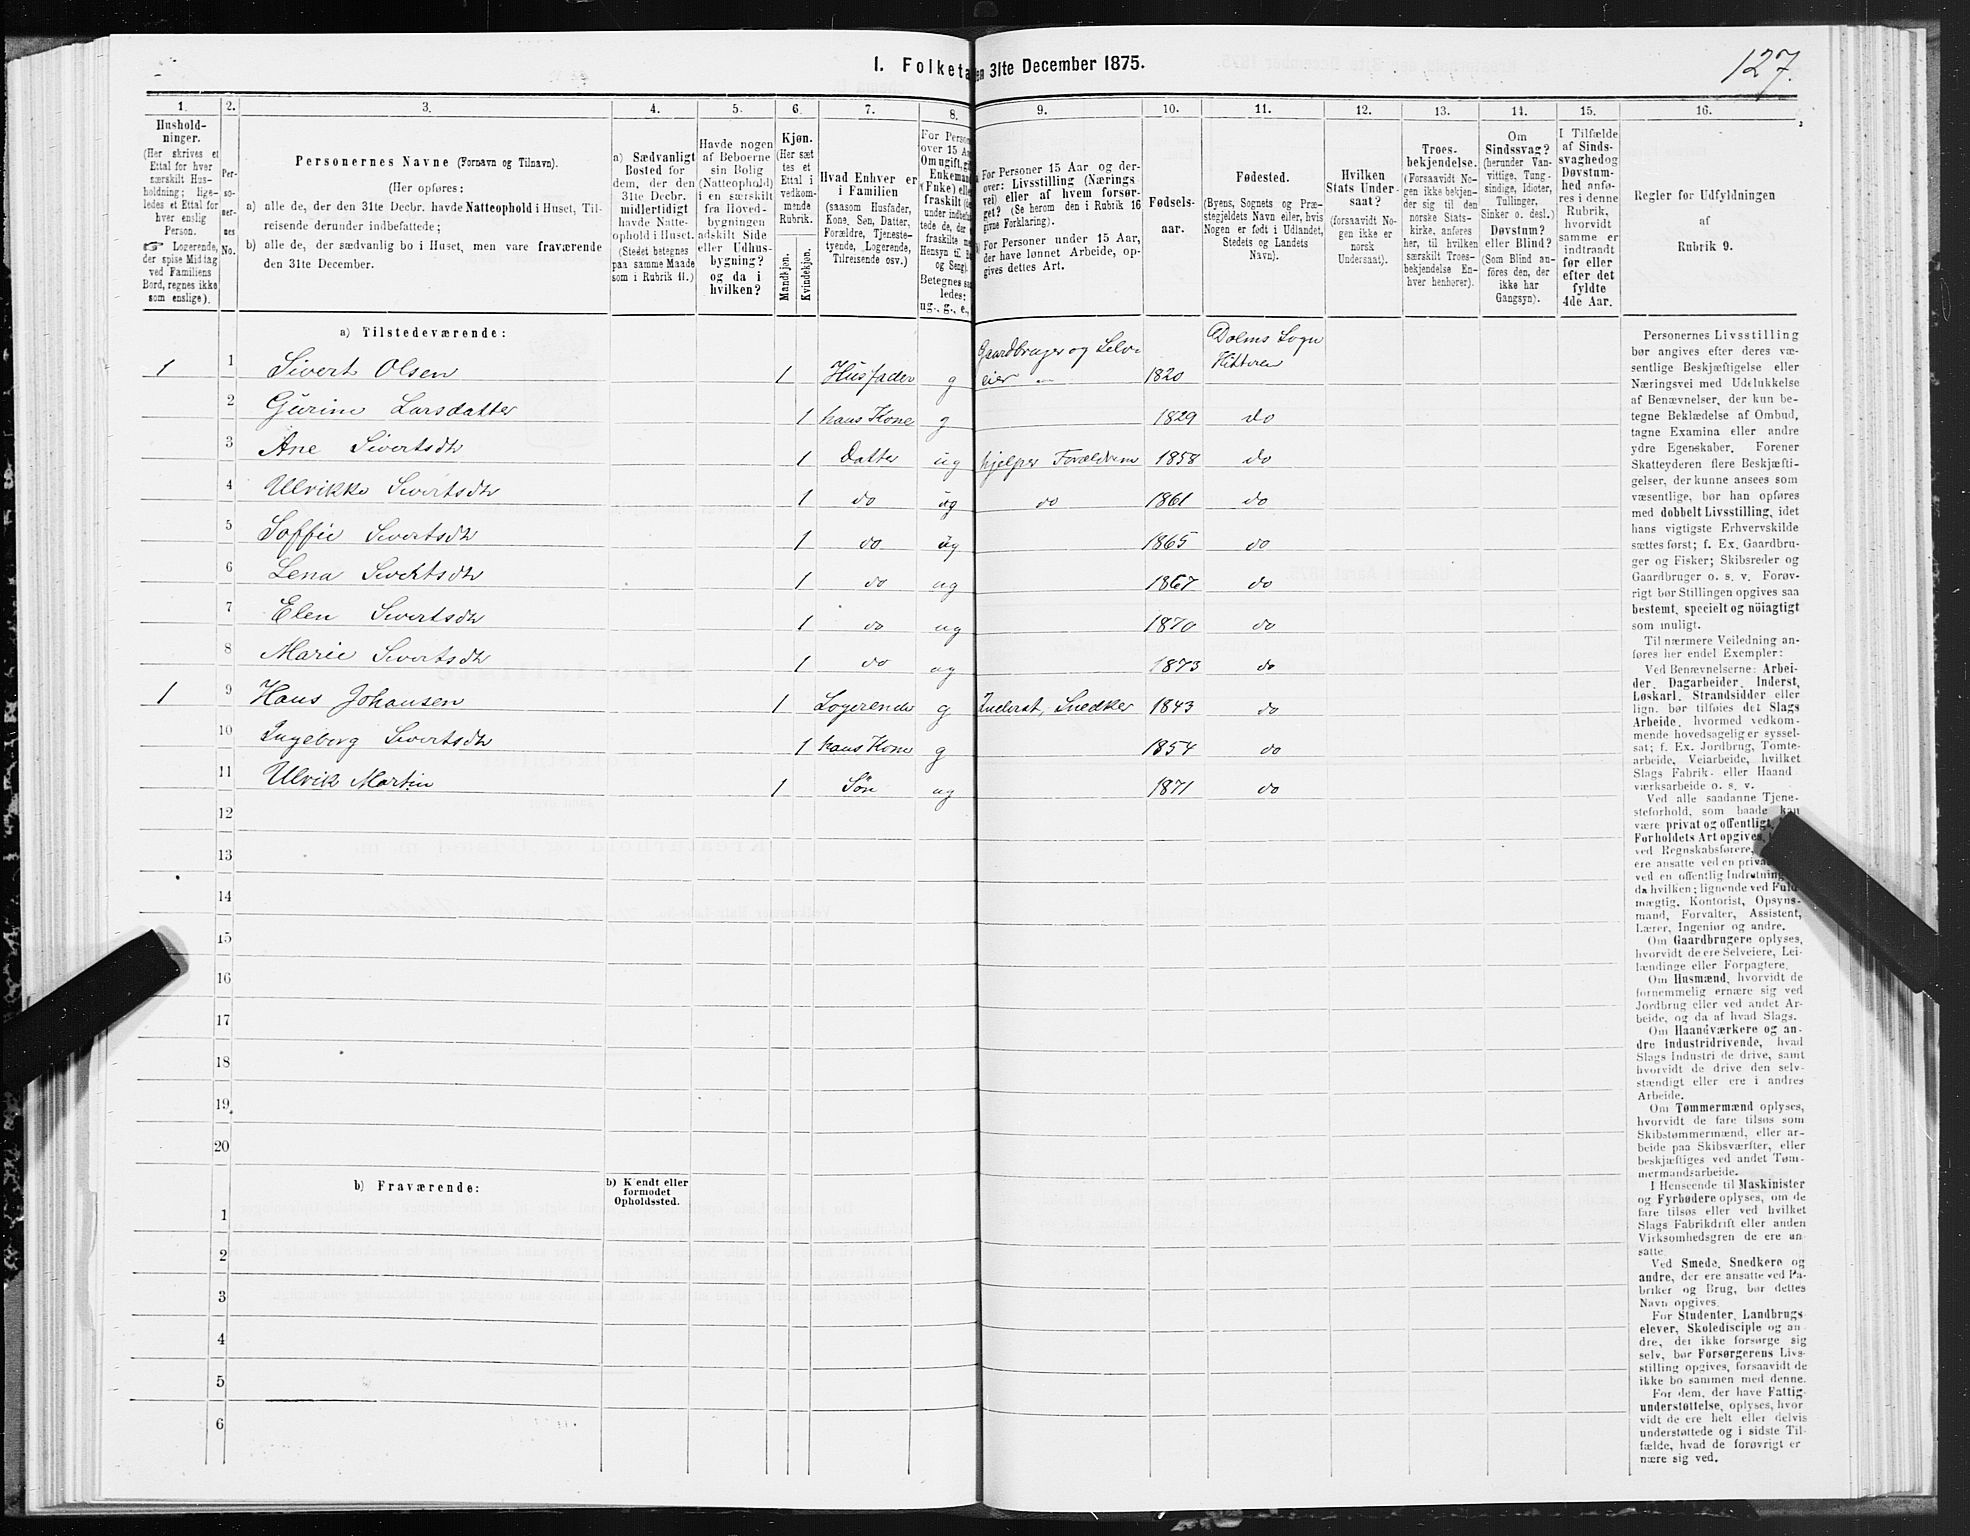 127.
I. Folketa en 31te December 1875.
1. 2. 3. 4. 5. 6. 7. 8. 9. 10. 11. 12. 13. 14. 15. 16.
Hushold-
ninger.
(Her skrives et
Ettal for hver
særskilt Hus-
holdning; lige-
ledes et Ettal for
hver enslig
Person.
☞ Logerende,
der spise Middag
ved Familiens
Bord, regnes ikke
som enslige).
Per-
so-
ner-
nes
No.
Personernes Navne (Fornavn og Tilnavn).
(Her opføres:
a) alle de, der den 31te Decbr. havde Natteophold i Huset, Til-
reisende derunder indbefattede;
b) alle de, der sædvanlig bo i Huset, men vare fraværende
den 31te December.
a) Sædvanligt
Bosted for
dem, der den
31te Decbr.
midlertidigt
havde Natte-
ophold i Huset.
(Stedet betegnes
paa samme Maade
som i Rubrik 11.)
Havde nogen
af Beboerne
sin Bolig
(Natteophold)
i en særskilt
fra Hoved-
bygningen
adskilt Side
eller Udhus-
bygning?
og da i
hvilken?
Kjøn.
(Her sæt
tes et
Ettal i
vedkom-
mende
Rubrik.
Mandkjøn.
Kvindekjøn.
Hvad Enhver er
i Familien
(saasom Husfader,
Kone, Søn, Datter,
Forældre, Tjeneste-
tyende, Logerende,
Tilreisende osv.)
For Person
over 15 A
Om ugift, gi
Enkeman
(Enke) elle
fraskilt (de
under indbefat
tede de, der
fraskilte m
Hensyn til B
og Seng).
Betegnes sa
ledes:
ug., g., e.,
For Personer 15 Aar og der-
over: Livsstilling (Nærings-
vei) eller af hvem forsør-
get? (Se herom den i Rubrik 16
givne Forklaring).
For Personer under 15 Aar,
der have lønnet Arbeide, op-
gives dettes Art.
Fødsels-
aar.
Fødested.
(Byens, Sognets og Præ-
stegjeldets Navn eller, hvis
Nogen er født i Udlandet,
Stedets og Landets
Navn).
Hvilken
Stats Under-
saat?
(forsaavidt No-
gen ikke er
norsk
Undersaat).
Troes-
bekjendelse.
(Forsaavidt No-
gen ikke bekjen-
der sig til den
norske Stats-
kirke, anføres
her, til hvilken
særskilt Troes-
bekjendelse En-
hver henhører).
Om
Sindssvag?
(herunder Van-
vittige, Tung-
sindige, Idioter,
Tullinger,
Sinker o. desl.)
Døvstum?
eller Blind?
(Som Blind an-
føres den, der
ikke har
Gangsyn).
I Tilfælde
af Sinds-
svaghed og
Døvstum-
hed anfø-
res i denne
Rubrik,
hvorvidt
samme er
indtraadt
før eller
efter det
fyldte
4de Aar.
Regler for Udfyldningen
af
Rubrik 9.
a) Tilstedeværende:
1 1 Sivert Olsen 1 Husfader g Gaardbruger og Selv-eier 1820 Dolms Sogn Hitteren
2 Gurine Larsdatter 1 hans Kone g 1829 do
3 Ane Sivertsdtr 1 Datter ug hjelper Forældrene 1858 do
4 Ulrikke Sivertsdtr 1 do ug do 1861 do
5 Soffie Sivertsdtr 1 do ug 1865 do
6 Lena Sivertsdtr 1 do ug 1867 do
7 Elen Sivertsdtr 1 do ug 1870 do
8 Marie Sivertsdtr 1 do ug 1873 do
1 9 Hans Johansen 1 Logerende g Inderst, Snedker 1843 do
10 Ingeborg Sivertsdtr 1 hans Kone g 1854 do
11 Ulrik Martin 1 Søn ug 1871 do
12
13
14
15
16
17
18
19
20
b) Fraværende:
b) Kjendt eller
formodet
Opholdssted.
1
2
3
4
5
6
Personernes Livsstilling
bør angives efter deres væ-
sentlige Beskjæftigelse eller
Næringsvei med Udelukkelse
af Benævnelser, der kun be-
tegne Beklædelse af Ombud,
tagne Examina eller andre
ydre Egenskaber. Forener
Skatteyderen flere Beskjæfti-
gelser, der kunne ansees som
væsentlige, bør han opføres
med dobbelt Livsstilling, idet
hans vigtigste Erhvervskilde
sættes først; f. Ex. Gaardbru-
ger og Fisker; Skibsreder og
Gaardbruger o. s. v. Forøv-
rigt bør Stillingen opgives saa
bestemt, specielt og nöiagtigt
som muligt.
Til nærmere Veiledning an-
føres her endel Exempler:
Ved Benævnelserne: Arbei-
der, Dagarbeider, Inderst,
Løskarl, Strandsidder eller
lign. bør tilføies det Slags
Arbeide, hvormed vedkom-
mende hovedsagelig er syssel-
sat; f. Ex. Jordbrug, Tomte-
arbeide, Veiarbeide, hvilket
Slags Fabrik- eller Haand
værksarbeide o. s. v.
Ved alle saadanne Tjene-
steforhold, som baade kan
være privat og offentligt,
Forholdets Art opgives,
ved Regnskabsførere,
ere ansatte ved en privat
ved en offentlig Indretning
da hvilken; lignende ved Fuld-
mægtig, Kontorist, Opsyns-
mand, Forvalter, Assistent,
Lærer, Ingeniør og andre.
Om Gaardbrugere oplyses,
hvorvidt de ere Selveiere, Lei-
lændinge eller Forpagtere.
Om Husmænd, hvorvidt de
fornemmelig ernære sig ved
Jordbrug eller ved andet Ar-
beide, og da af hvad Slags.
Om Haandværkere og an-
dre Industridrivende, hvad
Slags Industri de drive, samt
hvorvidt de drive den selv-
stændigt eller ere i andres
Arbeide.
Om Tømmermænd oplyses,
hvorvidt de fare tilsøs som
Skibstømmermænd, eller ar-
beide paa Skibsværfter, eller
beskjæftiges ved andet Tøm-
mermandsarbeide.
I Henseende til Maskinister
og Fyrbødere oplyses, om de
fare tilsøs eller ved hvilket
Slags Fabrikdrift eller anden
Virksomhedsgren de ere an-
satte.
Ved Smede, Snedkere og
andre, der ere ansatte ved Fa-
briker og Brug, bør dettes
Navn opgives.
For Studenter, Landbrugs
elever, Skoledisciple og an-
dre, der ikke forsørge sig
selv, bør Forsørgerens Livs-
stilling opgives, forsaavidt de
ikke bo sammen med denne.
For dem, der have Fattig-
understøttelse, oplyses, hvor
vidt de ere helt eller delvis
understøttede og i sidste Til-
fælde, hvad de forøvrigt er
nære sig ved.